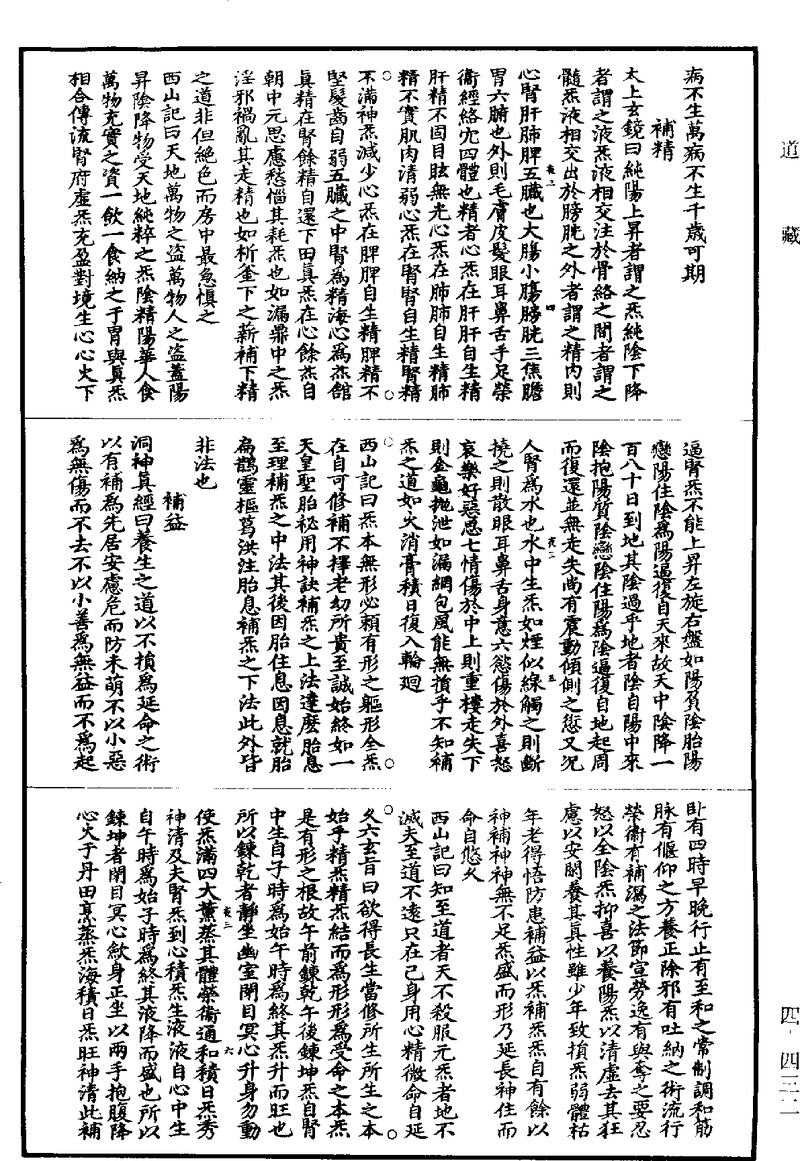 道藏
四・四三二
病不生萬病不生千歲可期
補精
太上玄鏡曰純陽上昇者謂之炁純陰下降
者謂之液炁液相交注於骨絡之間者謂之
髓炁液相交出於膀胱之外者謂之精内則
心腎肝肺脾五臟也大腸小腸膀胱三焦膽
胃六腑也外則毛膚皮髮眼耳鼻舌手足榮
衛經絡穴四體也精者心炁在肝肝自生精
肝精不固目眩無光心炁在肺肺自生精肺
精不實肌肉清弱心炁在腎腎自生精腎精
不滿神炁減少心炁在脾脾自生精脾精不
堅髮齒自弱五臟之中腎爲精海心爲炁舘
真精在腎餘精自還下田真炁在心餘炁自
朝中元思慮愁惱其耗炁也如漏鼎中之炁
淫邪禍亂其走精也如析釜下之薪補下精
之道非但絶色而房中最急慎之
西山記曰天地萬物之盜萬物人之盜蓋陽
昇陰降物受天地純粹之炁陰精陽華人食
萬物充實之資一飲一食納之于胃與真炁
相合傳流腎府虛炁充盈對境生心心火下
逼腎炁不能上昇左旋右盤如陽負陰胎陽
戀陽住陰爲陽逼復自天來故天中陰降一
百八十日到地其陰過乎地者陰自陽中來
陰抱陽質陰戀陰住陽爲陰逼復自地起周
而復還並無走失尚有震動傾側之愆又況
人腎爲水也水中生炁如煙似線觸之則斷
撓之則散眼耳鼻舌身意六慾傷於外喜怒
哀樂好惡惡七情傷於中上則重樓走失下
則金龜抛泄如漏網包風能無損乎不知補
炁之道如火消膏積日復入輪廻
西山記曰炁本無形必頼有形之軀形全炁
在自可修補不擇老幼所貴至誠始終如一
天皇聖胎祕用神訣補炁之上法達麽胎息
至理補炁之中法其後因胎住息因息就胎
扁鵲靈樞葛洪注胎息補炁之下法此外皆
非法也
補益
洞神真經曰養生之道以不損爲延命之術
以有補爲先居安慮危而防未萌不以小惡
爲無傷而不去不以小善爲無益而不爲起
卧有四時早晚行止有至和之常制調和筋
脉有偃仰之方養正除邪有吐納之術流行
榮衛有補瀉之法節宣勞逸有與奪之要忍
怒以全陰炁抑喜以養陽炁以清虛去其狂
慮以安閑養其真性雖少年致損炁弱體枯
年老得悟防患補益以炁補炁炁自有餘以
神補神神無不足炁盛而形乃延長神住而
命自悠久
西山記曰知至道者天不殺服元炁者地不
滅夫至道不遠只在己身用心精微命自延
久六玄旨曰欲得長生當修所生所生之本
始乎精炁精炁結而爲形形爲受命之本炁
是有形之根故午前鍊乾午後鍊坤炁自腎
中生自子時爲始午時爲終其炁升而旺也
所以鍊乾者靜坐幽室閉目冥心升身勿動
使炁滿四大薰蒸其體榮衛通和積日炁秀
神清及夫腎炁到心積炁生液液自心中生
自午時爲始子時爲終其液降而盛也所以
鍊坤者閉目冥心歛身正坐以兩手抱腹降
心火于丹田烹蒸炁海積日炁旺神清此補